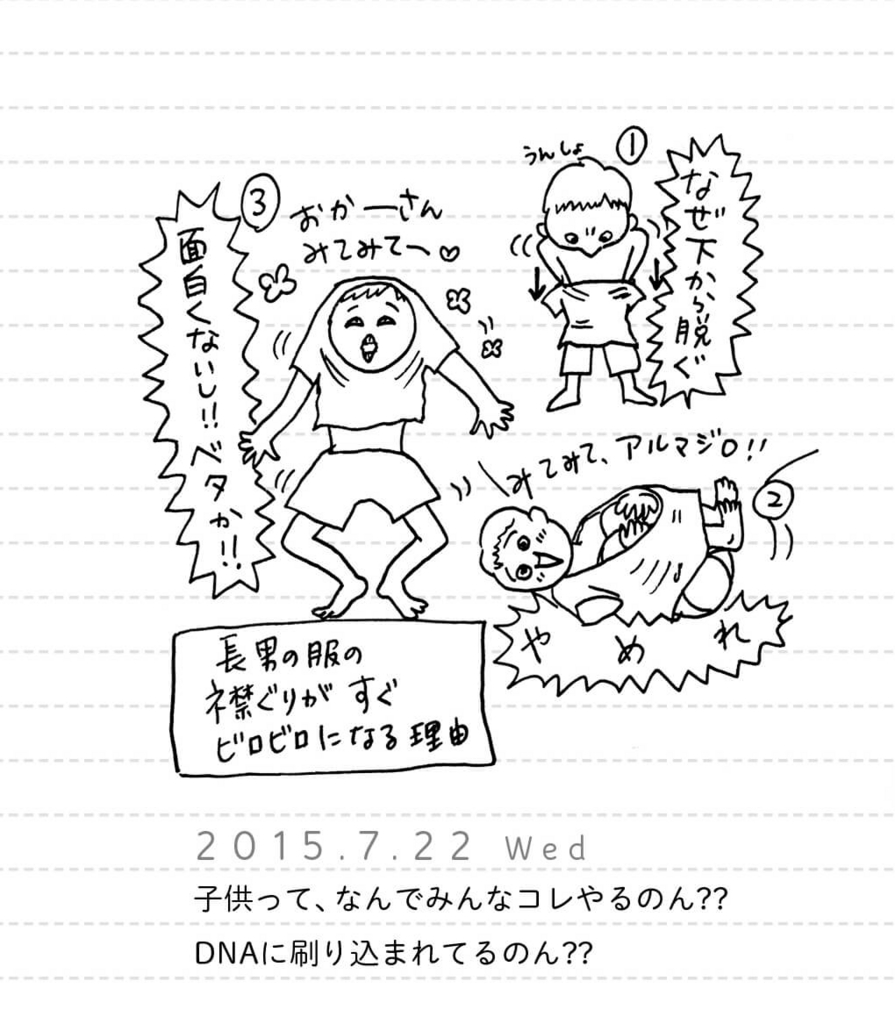 ①
うんしょ
なぜ下から脱ぐ
②
みてみて、アルマジロ!!
やめれ
③
おかーさん
みてみて〜♡
面白くないし!!ベタか!!
長男の服の
襟ぐりがすぐ
ビロビロになる理由
2015.7.22 Wed
子供って、なんでみんなコレやるのん??
DNAに刷り込まれてるのん??